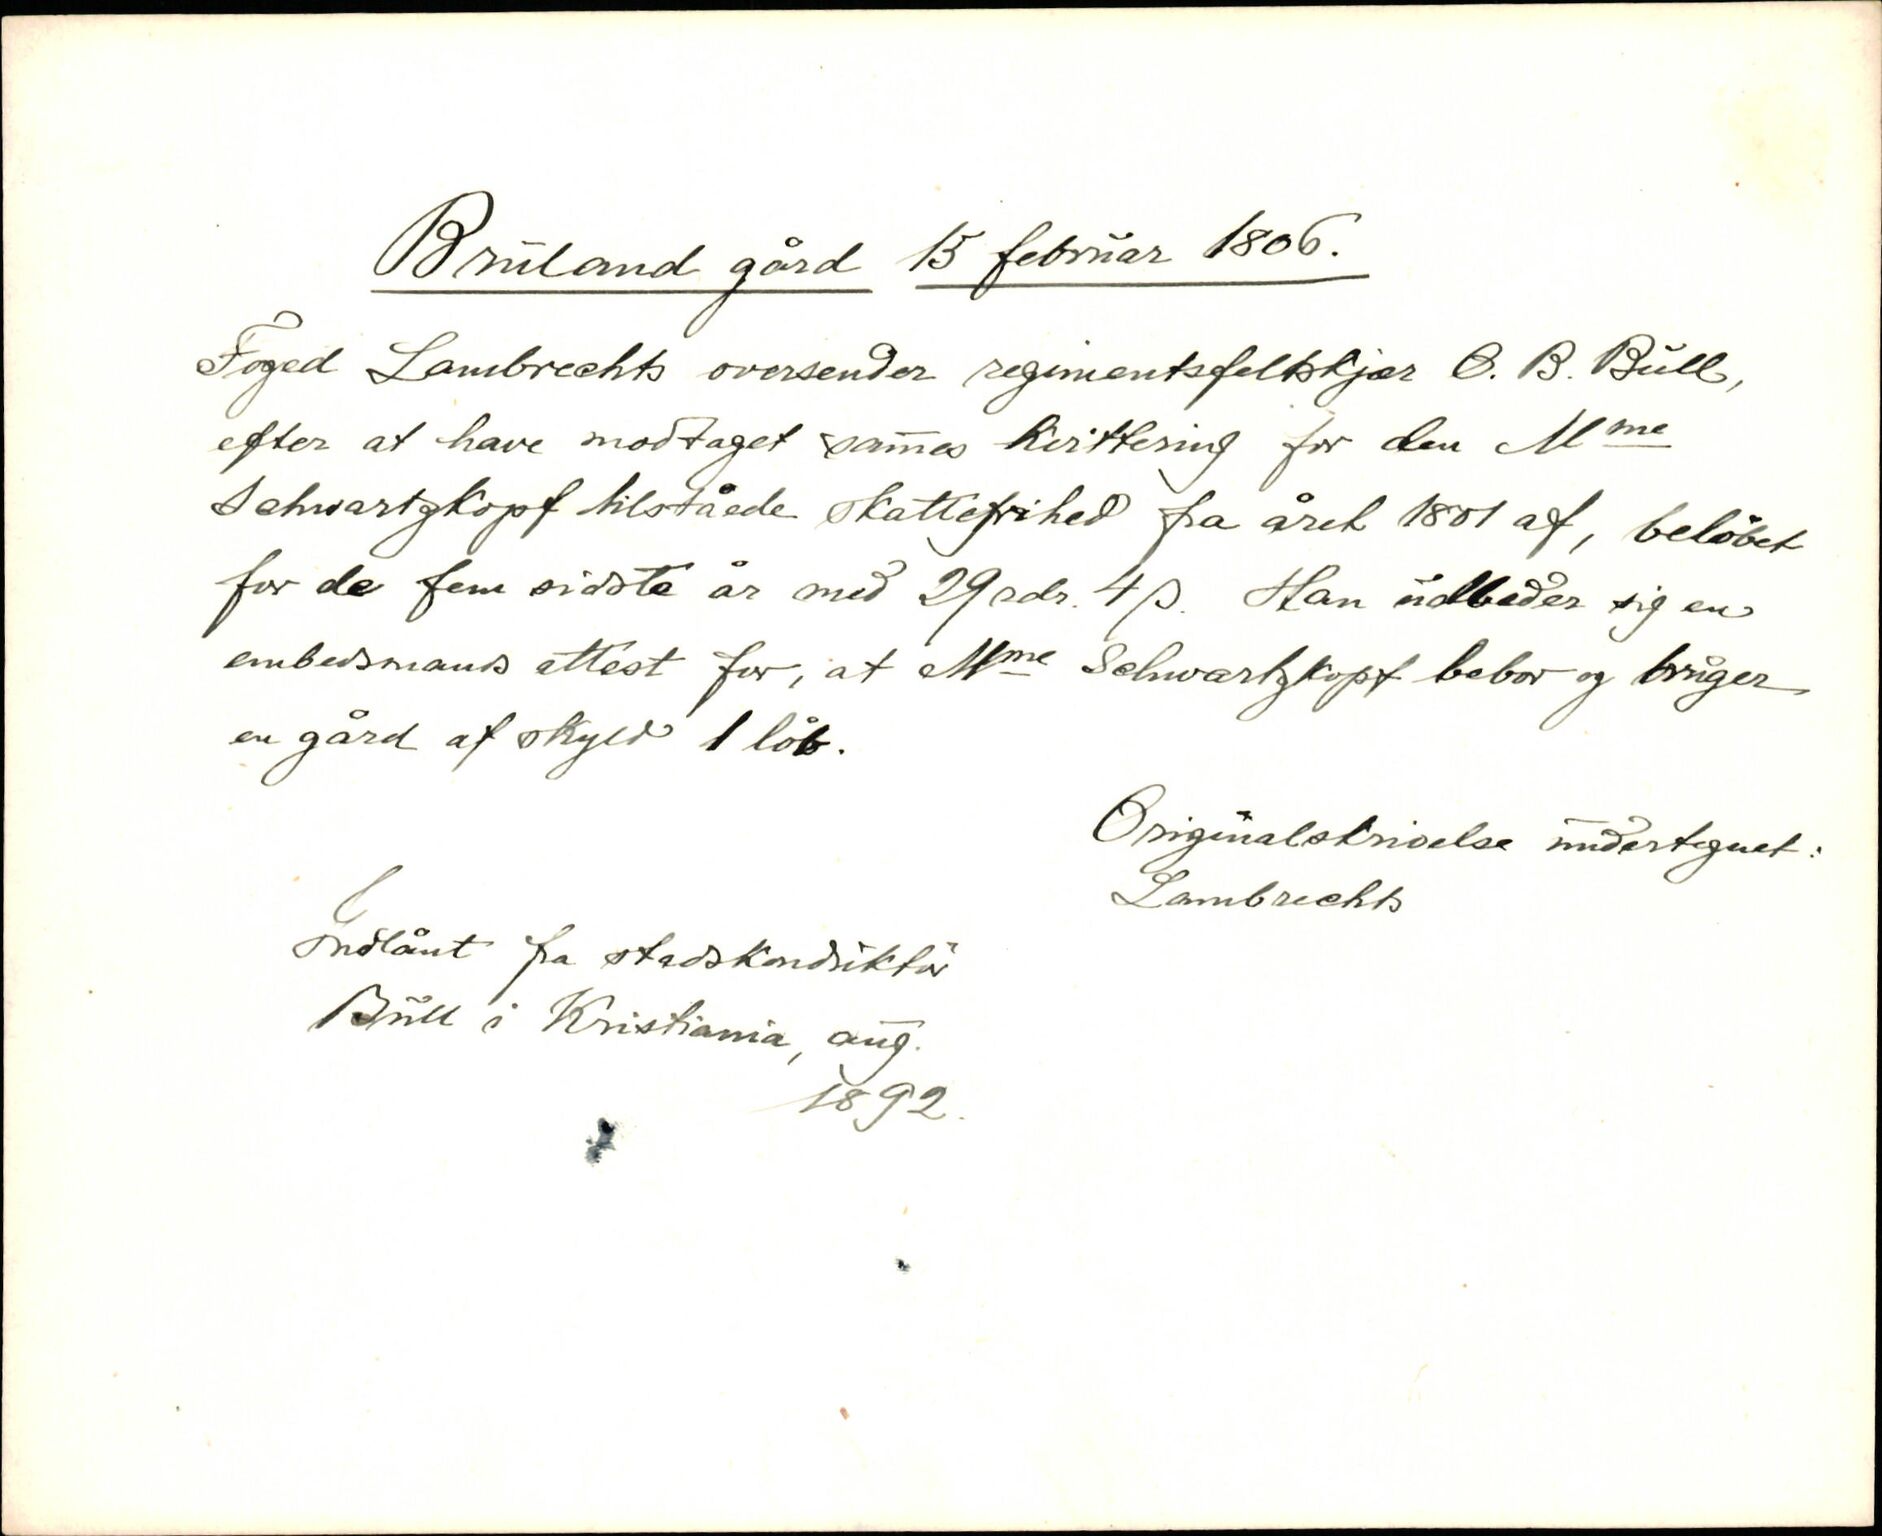 Bruland gård 15 februar 1806.
Foged Lambrechts oversender regimentsfeltskjær O. B. Bull,
efter at have modtaget sam̅es kvittering for den Mme
Schwartzkopf tilståede skattefrihed fra året 1801 af, beløbet
for de fem sidste år med 29 rdr. 4 β. Han udbeder sig en
embedsmands attest for, at Mme Schwartzkopf bebor og bruger
en gård af skyld 1 løb.
Originalskrivelse undertegnet:
Lambrechts
Indlånt fra stadskonduktør
Bull i Kristiania, aug.
1892.